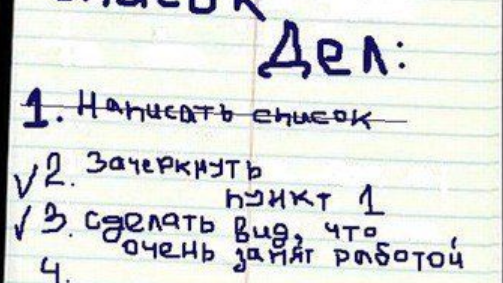 список
Дел:
1. Написать список
✓2. Зачеркнуть
пункт 1
✓3. сделать вид, что
очень занят работой
4.